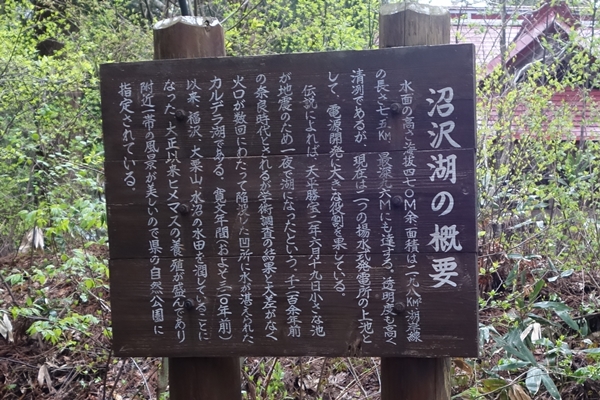 沼沢湖の概要
水面の高さ海抜四七〇M余、面積は一一九八K㎡湖岸線
の長さ七・五㎞ 最深九六Mにも達する。透明度も高く
清冽であるが 現在は二つの揚水式発電所の上池と
して、電源開発に大きな役割を果している。
伝説によれば、天平勝宝二年六月十九日小さな池
が地震のため一夜で湖になったという。千二百余年前
の奈良時代とされるが学術調査の結果も大差がなく
火口が数回にわたって陥没した凹所に水が湛えられた
カルデラ湖である。寛文年間(およそ三一〇年前)
以来、福沢、大栗山、水沼の水田を潤していることに
なった。大正以来ヒメマスの養殖が盛んであり
附近一帯の風景が美しいので県の自然公園に
指定されている。